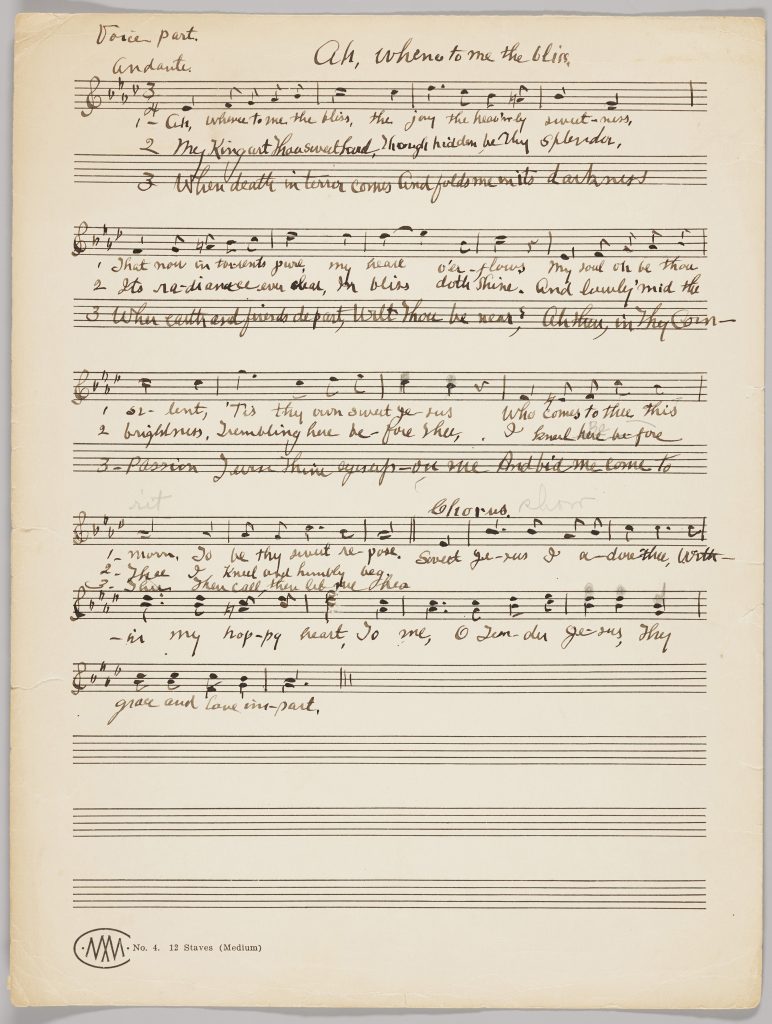 Voice part.
Ah, whence to me the bliss,
Andante.
1 - Ah, whence to me the bliss, the joy the heav'nly sweet-ness,
2 My King art Thou sweet hid, Though hidden be Thy splendor,
3 When death in terror comes And folds me in its darkness
1 That now in torrents pure, my heart o'er-flows My soul oh be thou
2 Its ra-diance ever clear, In bliss doth shine. And lowly 'mid the
3 When earth and friends de part, Wilt Thou be near? Ah then, in Thy Com-
1 si-lent, 'Tis thy own sweet Je-sus Who comes to thee this
2 brightness, Trembling here be-fore Thee, . I kneel here be-fore
3 - Passion Turn Thine eyes up-on me And bid me come to
rit
Chorus.
slow
1- morn, To be thy sweet re-pose. Sweet Je-sus I a-dore thee, With-
2- Thee I kneel and humbly beg,
3- Thee Then call, then let me
-in my hap-py heart, To me, O Ten-der Je-sus, Thy
grace and love im-part.
CMM No. 4. 12 Staves (Medium)